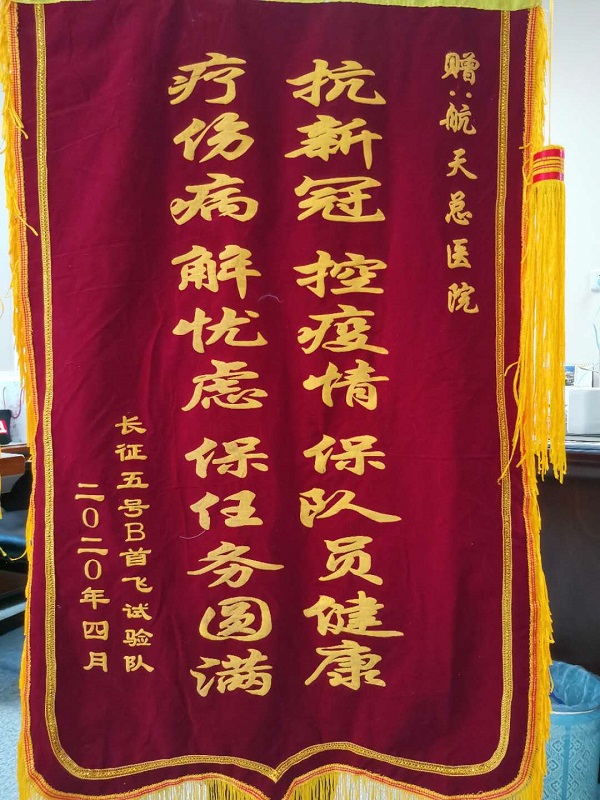 赠:航天总医院
抗新冠 控疫情 保队员健康
疗伤病 解忧虑 保任务圆满
长征五号B首飞试验队
二〇二〇年四月